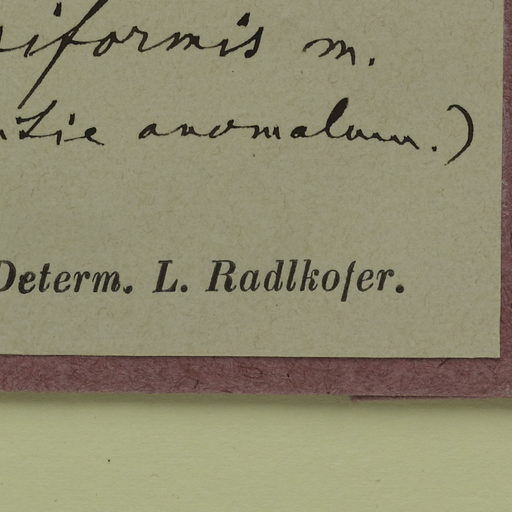 iformis m.
anomalum.)
Determ. L. Radlkofer.